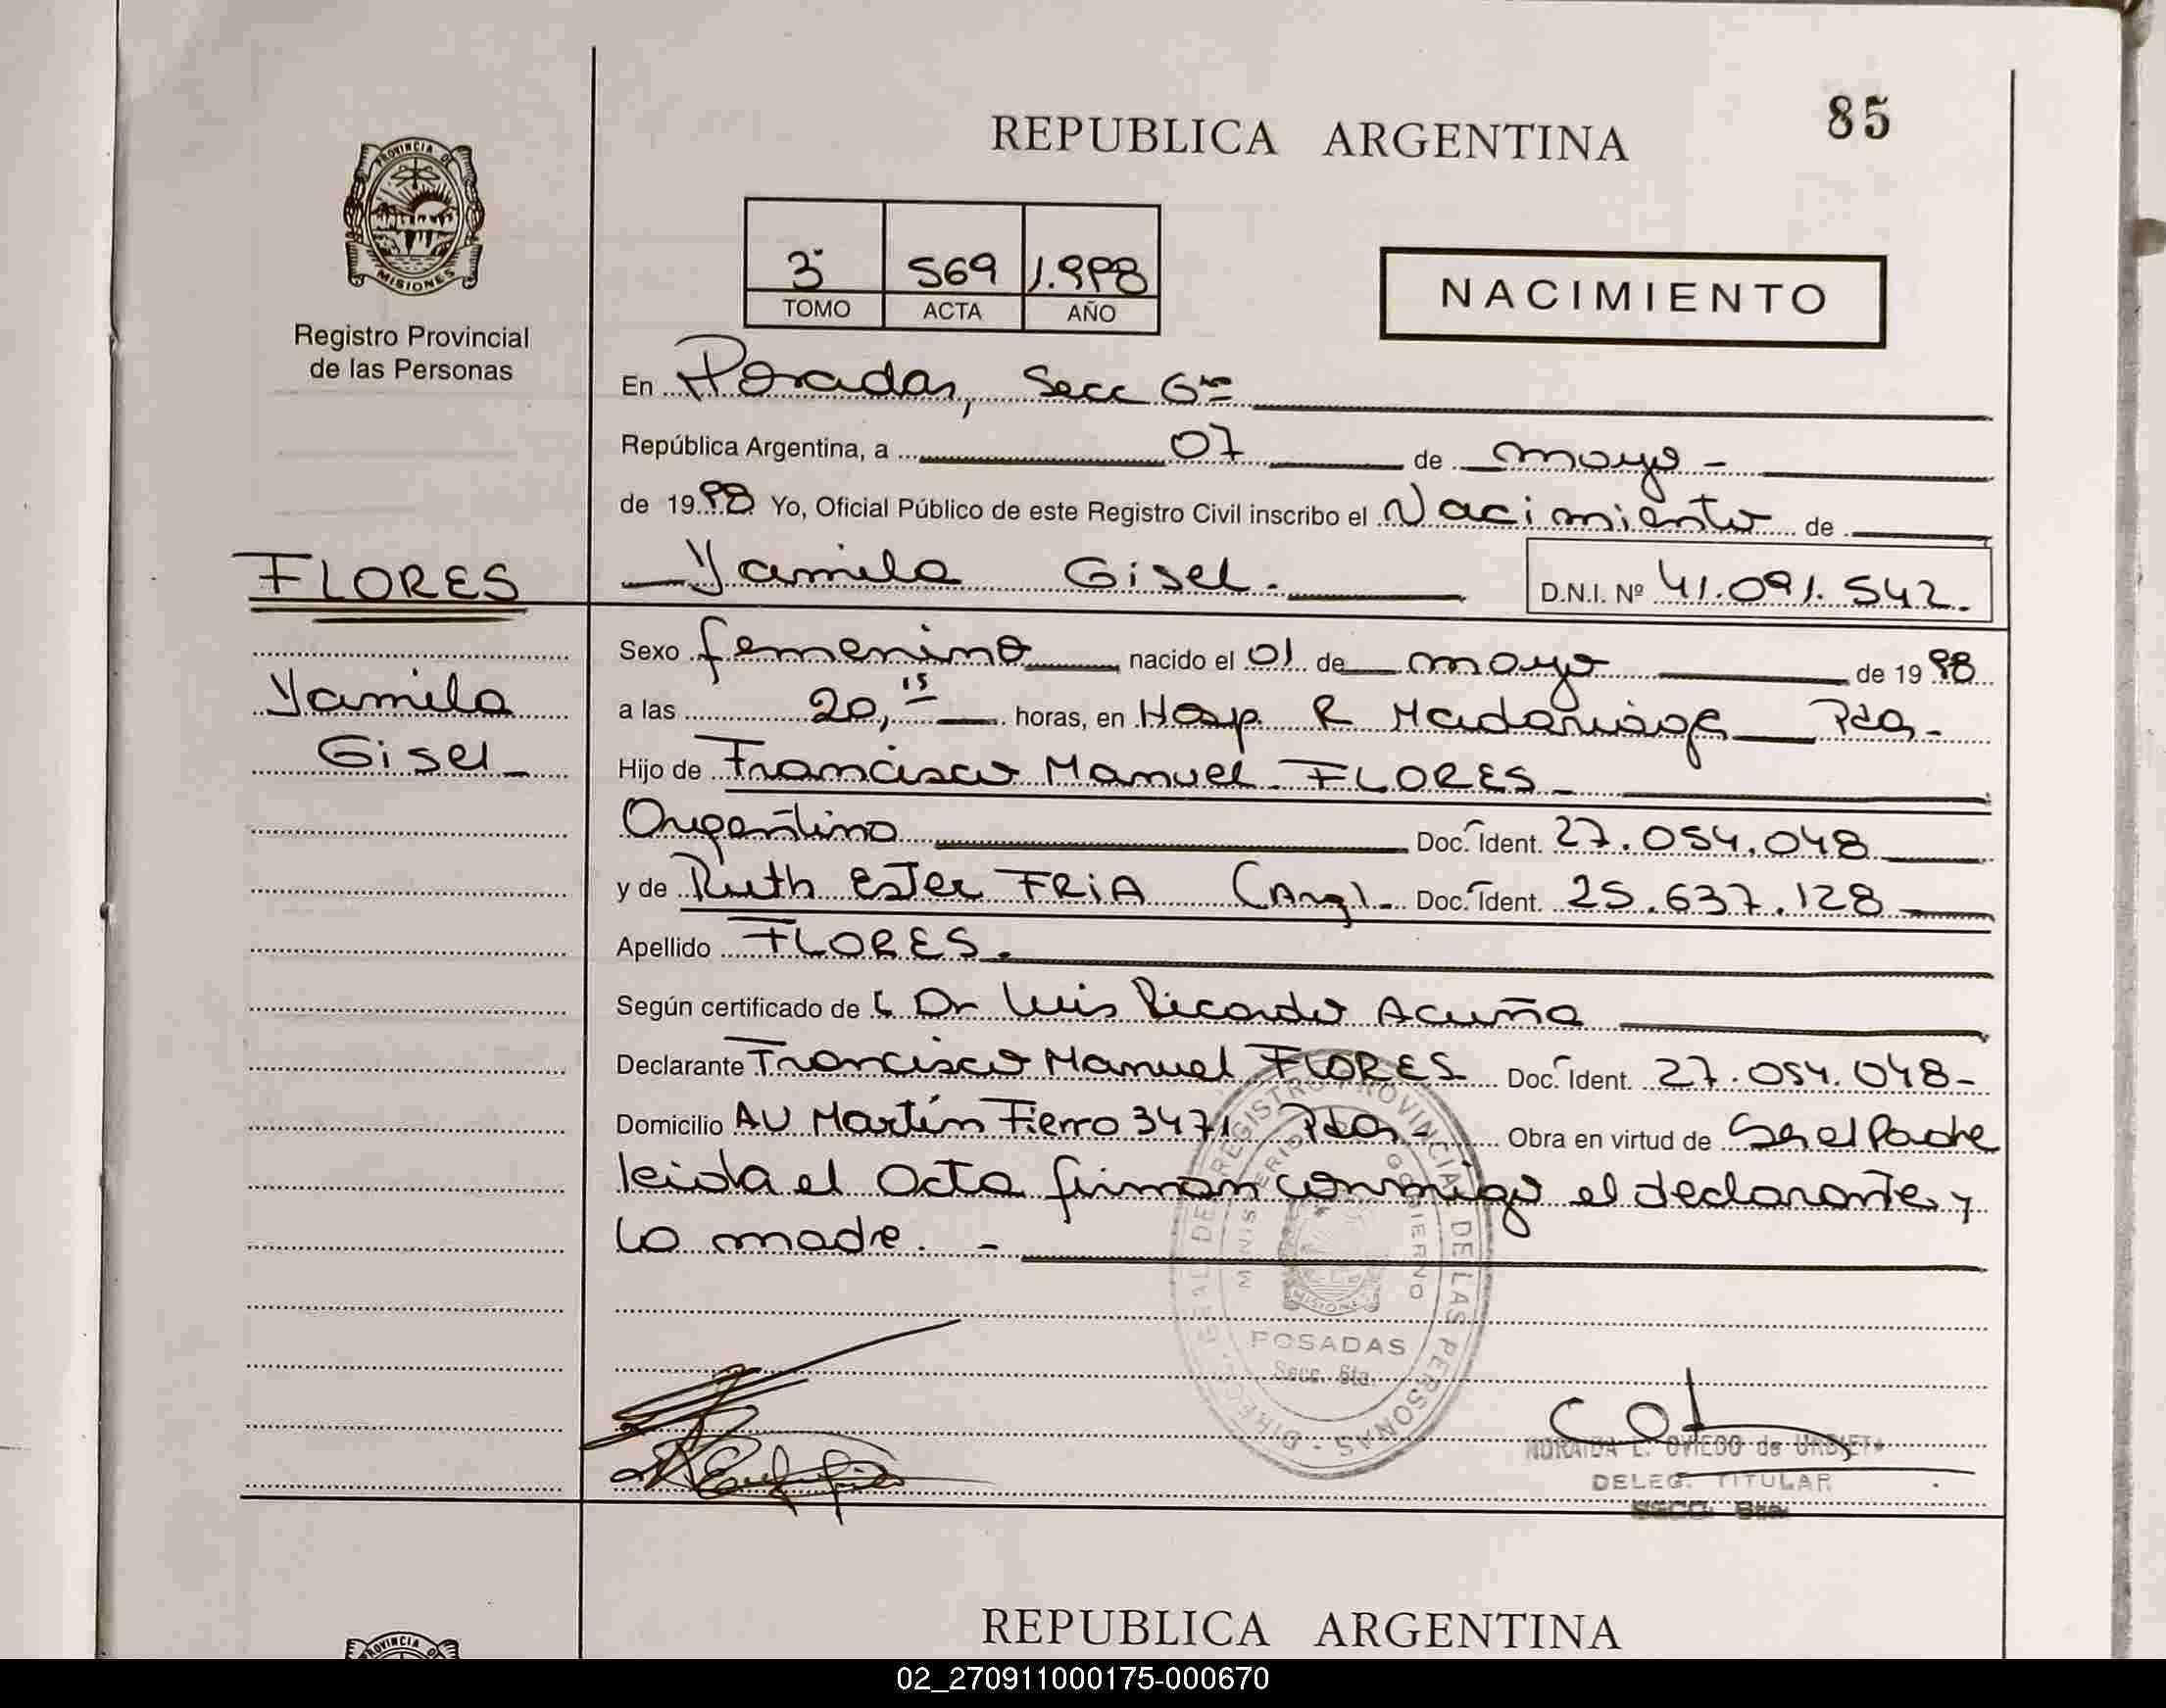 85
REPUBLICA ARGENTINA
PROVINCIA DE
MISIONES
Registro Provincial
de las Personas
3º 569 1.998
TOMO ACTA AÑO
NACIMIENTO
En Posadas, Secc 6ta
República Argentina, a 07 de mayo -
de 1998 Yo, Oficial Público de este Registro Civil inscribo el Nacimiento de
FLORES
Yamila Gisel. D.N.I. Nº 41.091.542.
Yamila
Gisel
Sexo femenino nacido el 01 de mayo de 1998
a las 20,15 horas, en Hosp R Madariaga Pdas -
Hijo de Francisco Manuel FLORES
Argentino Doc. Ident. 27.054.048
y de Ruth Ester FRIA (Arg). Doc. Ident. 25.637.128
Apellido FLORES.
Según certificado de L Dr Luis Ricardo Acuña
Declarante Francisco Manuel FLORES Doc. Ident. 27.054.048-
Domicilio AV Martín Fierro 3471 Pdas - Obra en virtud de Ser el Padre
leida el Acta firman conmigo el declarante y
la madre. -
DIREC. GRAL DE REGISTRO PROVINCIAL DE LAS PERSONAS
MINISTERIO GOBIERNO
MISIONES
POSADAS
Secc. 6ta.
L. OVIEDO de URBIETA
DELEG. TITULAR
SECC. 6ta.
REPUBLICA ARGENTINA
PROVINCIA
02_270911000175-000670